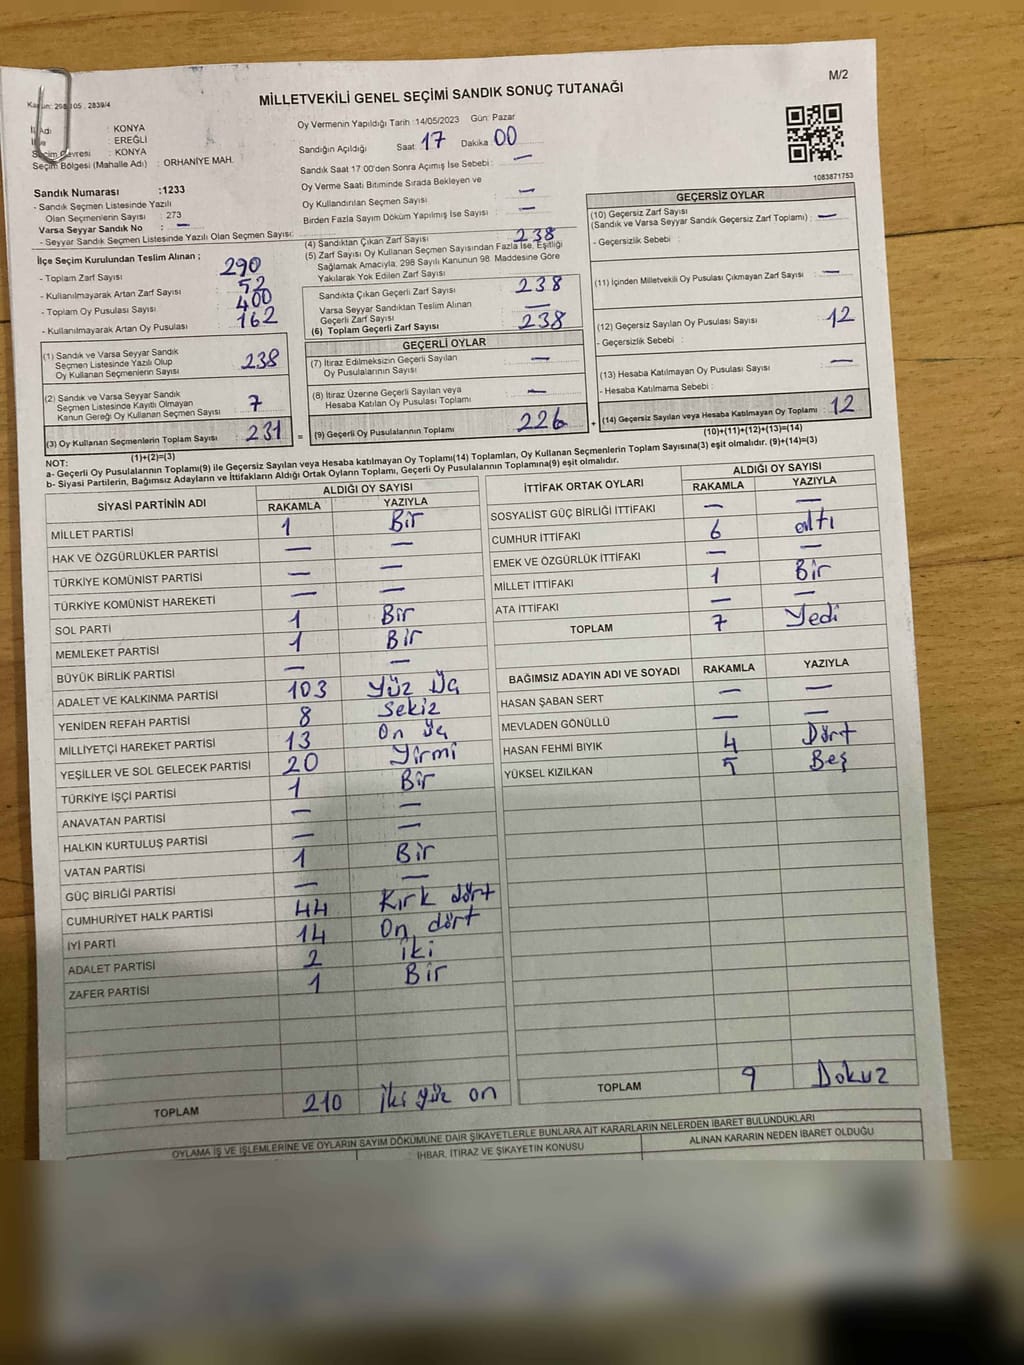 M/2
Kanun: 298 105 . 2839/4
MİLLETVEKİLİ GENEL SEÇİMİ SANDIK SONUÇ TUTANAĞI
İl Adı : KONYA
: EREĞLİ
Seçim Çevresi : KONYA
Seçim Bölgesi (Mahalle Adı) : ORHANİYE MAH.
Oy Vermenin Yapıldığı Tarih :14/05/2023 Gün: Pazar
Sandığın Açıldığı Saat 17 Dakika 00
Sandık Saat 17 00'den Sonra Açımış İse Sebebi : —
Oy Verme Saati Bitiminde Sırada Bekleyen ve
Oy Kullandırılan Seçmen Sayısı —
Birden Fazla Sayım Döküm Yapılmış İse Sayısı —
1083871753
Sandık Numarası :1233
- Sandık Seçmen Listesinde Yazılı
Olan Seçmenlerin Sayısı : 273
Varsa Seyyar Sandık No : —
- Seyyar Sandık Seçmen Listesinde Yazılı Olan Seçmen Sayısı:
İlçe Seçim Kurulundan Teslim Alınan ;
- Toplam Zarf Sayısı 290
- Kullanılmayarak Artan Zarf Sayısı 52
- Toplam Oy Pusulası Sayısı 400
- Kullanılmayarak Artan Oy Pusulası 162
(1) Sandık ve Varsa Seyyar Sandık
Seçmen Listesinde Yazılı Olup
Oy Kullanan Seçmenlerin Sayısı 238
(2) Sandık ve Varsa Seyyar Sandık
Seçmen Listesinde Kayıtlı Olmayan
Kanun Gereği Oy Kullanan Seçmen Sayısı 7
(3) Oy Kullanan Seçmenlerin Toplam Sayısı : 231 =
(1)+(2)=(3)
(4) Sandıktan Çıkan Zarf Sayısı 238
(5) Zarf Sayısı Oy Kullanan Seçmen Sayısından Fazla İse, Eşitliği
Sağlamak Amacıyla, 298 Sayılı Kanunun 98. Maddesine Göre
Yakılarak Yok Edilen Zarf Sayısı
Sandıkta Çıkan Geçerli Zarf Sayısı 238
Varsa Seyyar Sandıktan Teslim Alınan
Geçerli Zarf Sayısı —
(6) Toplam Geçerli Zarf Sayısı 238
GEÇERLİ OYLAR
(7) İtiraz Edilmeksizin Geçerli Sayılan
Oy Pusulalarının Sayısı —
(8) İtiraz Üzerine Geçerli Sayılan veya
Hesaba Katılan Oy Pusulası Toplamı —
(9) Geçerli Oy Pusulalarının Toplamı 226 +
GEÇERSİZ OYLAR
(10) Geçersiz Zarf Sayısı
(Sandık ve Varsa Seyyar Sandık Geçersiz Zarf Toplamı) : —
- Geçersizlik Sebebi :
(11) İçinden Milletvekili Oy Pusulası Çıkmayan Zarf Sayısı : —
(12) Geçersiz Sayılan Oy Pusulası Sayısı : 12
- Geçersizlik Sebebi :
(13) Hesaba Katılmayan Oy Pusulası Sayısı : —
- Hesaba Katılmama Sebebi :
(14) Geçersiz Sayılan veya Hesaba Katılmayan Oy Toplamı : 12
(10)+(11)+(12)+(13)=(14)
NOT:
a- Geçerli Oy Pusulalarının Toplamı(9) ile Geçersiz Sayılan veya Hesaba katılmayan Oy Toplamı(14) Toplamları, Oy Kullanan Seçmenlerin Toplam Sayısına(3) eşit olmalıdır. (9)+(14)=(3)
b- Siyasi Partilerin, Bağımsız Adayların ve İttifakların Aldığı Ortak Oyların Toplamı, Geçerli Oy Pusulalarının Toplamına(9) eşit olmalıdır.
SİYASİ PARTİNİN ADI ALDIĞI OY SAYISI
RAKAMLA YAZIYLA
MİLLET PARTİSİ 1 Bir
HAK VE ÖZGÜRLÜKLER PARTİSİ — —
TÜRKİYE KOMÜNİST PARTİSİ — —
TÜRKİYE KOMÜNİST HAREKETİ — —
SOL PARTİ 1 Bir
MEMLEKET PARTİSİ 1 Bir
BÜYÜK BİRLİK PARTİSİ — —
ADALET VE KALKINMA PARTİSİ 103 Yüz Üç
YENİDEN REFAH PARTİSİ 8 Sekiz
MİLLİYETÇİ HAREKET PARTİSİ 13 On üç
YEŞİLLER VE SOL GELECEK PARTİSİ 20 Yirmi
TÜRKİYE İŞÇİ PARTİSİ 1 Bir
ANAVATAN PARTİSİ — —
HALKIN KURTULUŞ PARTİSİ — —
VATAN PARTİSİ 1 Bir
GÜÇ BİRLİĞİ PARTİSİ — —
CUMHURİYET HALK PARTİSİ 44 Kırk dört
İYİ PARTİ 14 On dört
ADALET PARTİSİ 2 iki
ZAFER PARTİSİ 1 Bir
TOPLAM 210 İki yüz on
İTTİFAK ORTAK OYLARI ALDIĞI OY SAYISI
RAKAMLA YAZIYLA
SOSYALİST GÜÇ BİRLİĞİ İTTİFAKI — —
CUMHUR İTTİFAKI 6 altı
EMEK VE ÖZGÜRLÜK İTTİFAKI — —
MİLLET İTTİFAKI 1 Bir
ATA İTTİFAKI — —
TOPLAM 7 Yedi
BAĞIMSIZ ADAYIN ADI VE SOYADI RAKAMLA YAZIYLA
HASAN ŞABAN SERT — —
MEVLADEN GÖNÜLLÜ — —
HASAN FEHMİ BIYIK 4 Dört
YÜKSEL KIZILKAN 5 Beş
TOPLAM 9 Dokuz
OYLAMA İŞ VE İŞLEMLERİNE VE OYLARIN SAYIM DÖKÜMÜNE DAİR ŞİKAYETLERLE BUNLARA AİT KARARLARIN NELERDEN İBARET BULUNDUKLARI
İHBAR, İTİRAZ VE ŞİKAYETİN KONUSU
ALINAN KARARIN NEDEN İBARET OLDUĞU